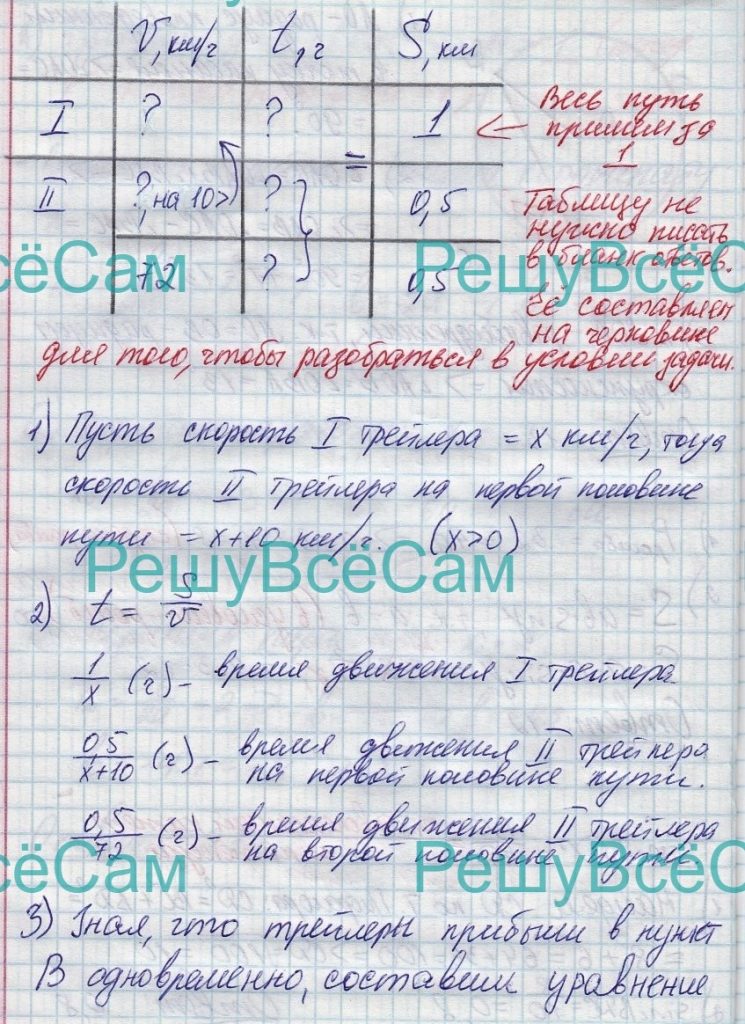 V, км/ч t, ч S, км
I ? ? 1
Весь путь
примем за
1
II ?, на 10> ? = 0,5
72 ? 0,5
Таблицу не
нужно писать
в бланк ответов.
Её составляем
на черновике
для того, чтобы разобраться в условии задачи.
РешуВсёСам
ВсёСам
1) Пусть скорость I трейлера = x км/ч, тогда
скорость II трейлера на первой половине
пути = x+10 км/ч. (x>0)
РешуВсёСам
2) t = S/v
1/x (ч) – время движения I трейлера
0,5/x+10 (ч) – время движения II трейлера
на первой половине пути.
0,5/72 (ч) – время движения II трейлера
на второй половине пути.
ВсёСам
РешуВсёСам
3) Зная, что трейлеры прибыли в пункт
В одновременно, составим уравнение